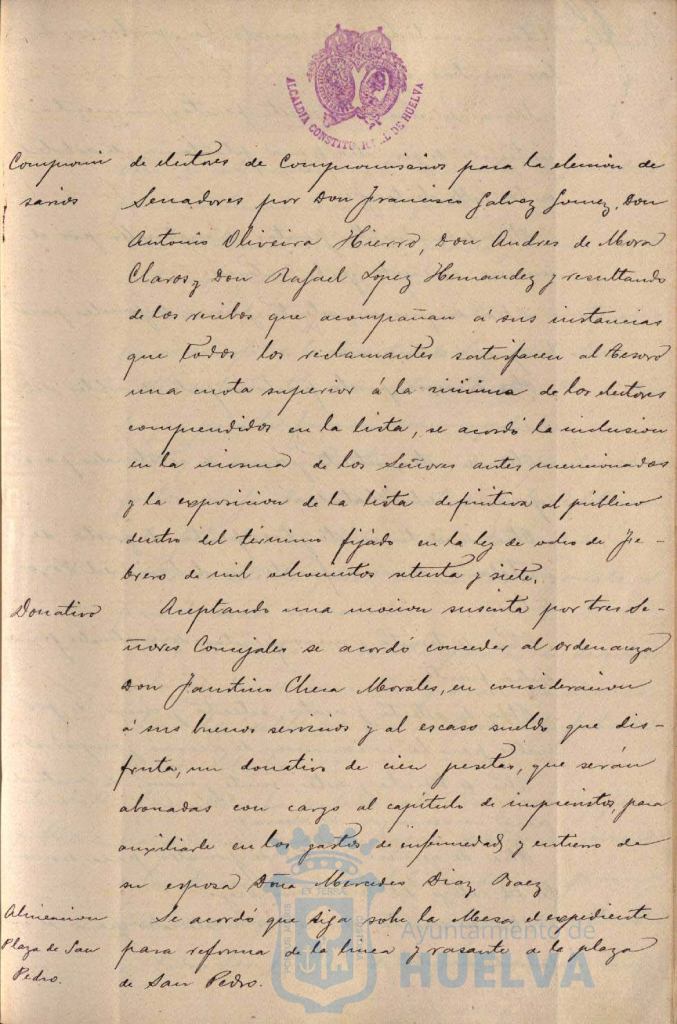 ALCALDIA CONSTITUCIONAL DE HUELVA
Compromi
sarios
de electores de Compromisarios para la eleccion de
Senadores por Don Francisco Galvez Gomez, Don
Antonio Oliveira Hierro, Don Andres de Mora
Claros y Don Rafael Lopez Hernandez y resultando
de los recibos que acompañan á sus instancias
que todos los reclamantes satisfacen al Tesoro
una cuota superior á la minima de los electores
comprendidos en la lista, se acordó la inclusion
en la misma de los Señores antes mencionados
y la exposicion de la lista definitiva al público
dentro del término fijado en la ley de ocho de Fe-
brero de mil ochocientos setenta y siete.
Donativo
Aceptando una mocion suscrita por tres Se-
ñores Concejales se acordó conceder al ordenanza
Don Faustino Checa Morales, en consideracion
á sus buenos servicios y al escaso sueldo que dis-
fruta, un donativo de cien pesetas, que serán
abonadas con cargo al capítulo de imprevistos, para
auxiliarle en los gastos de enfermedad y entierro de
su esposa Doña Mercedes Diaz Baez
Alineacion
Plaza de San
Pedro.
Se acordó que siga sobre la Mesa el expediente
para reforma de la linea y rasante de la plaza
de San Pedro.
Ayuntamiento de
HUELVA